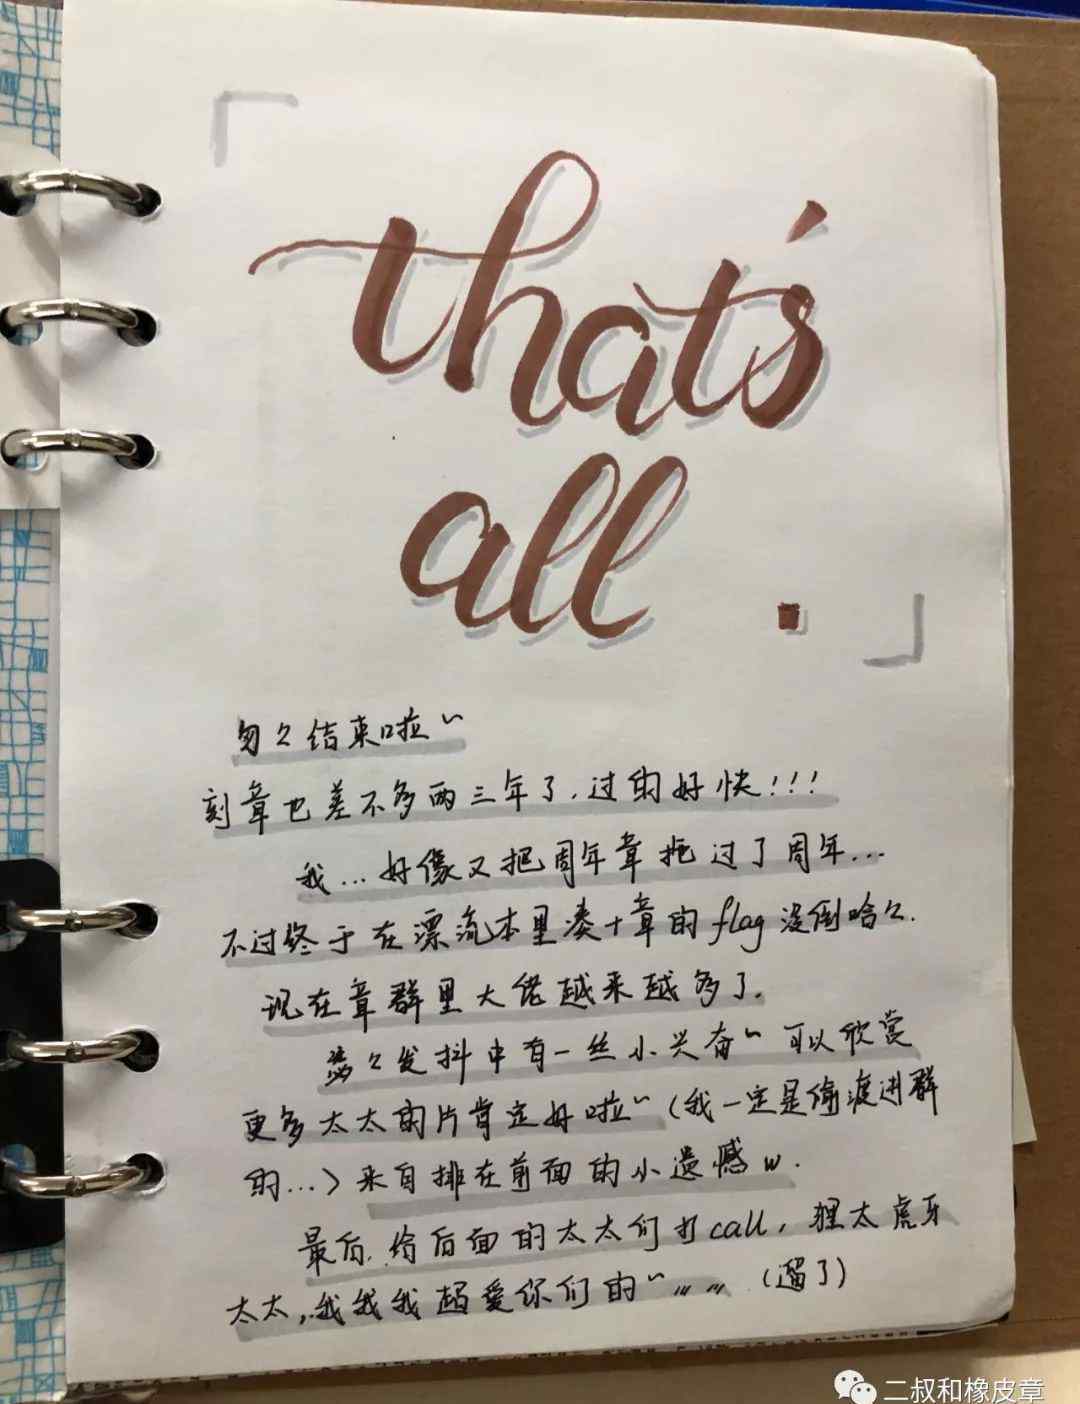 「
that's
all .
」
匆々结束啦~
刻章也差不多两三年了,过的好快!!!
我...好像又把周年章拖过了周年...
不过终于在漂流本里凑十章的flag没倒哈々.
现在章群里大佬越来越多了.
瑟々发抖中有一丝小兴奋~可以欣赏
更多太太的片肯定好啦~(我一定是偷渡进群
的...)来自排在前面的小遗憾w.
最后,给后面的太太们打call,狸太虎牙
太太,我我我超爱你们的~,,,,,,(遛了)
二叔和橡皮章